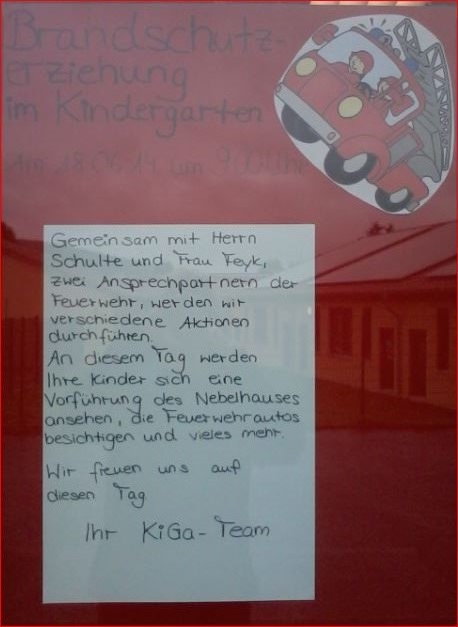 Brandschutz-
erziehung
im Kindergarten
Am 18.06.14 um 9.00 Uhr
Gemeinsam mit Herrn
Schulte und Frau Feyk,
zwei Ansprechpartnern der
Feuerwehr, werden wir
verschiedene Aktionen
durchführen.
An diesem Tag werden
Ihre Kinder sich eine
Vorführung des Nebelhauses
ansehen, die Feuerwehrautos
besichtigen und vieles mehr.
Wir freuen uns auf
diesen Tag
Ihr KiGa-Team